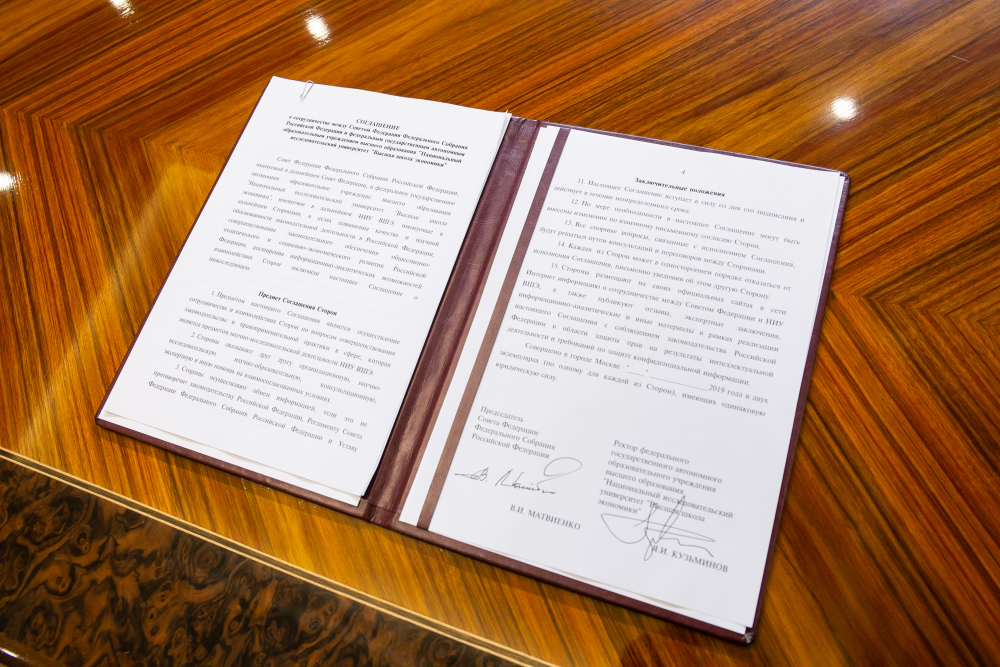 СОГЛАШЕНИЕ
о сотрудничестве между Советом Федерации Федерального Собрания
Российской Федерации и федеральным государственным автономным
образовательным учреждением высшего образования "Национальный
исследовательский университет "Высшая школа экономики"
Совет Федерации Федерального Собрания Российской Федерации,
именуемый в дальнейшем Совет Федерации, и федеральное государственное
автономное образовательное учреждение высшего образования
"Национальный исследовательский университет "Высшая школа
экономики", именуемое в дальнейшем НИУ ВШЭ, именуемые в
дальнейшем Сторонами, в целях повышения качества и научной
обоснованности законодательной деятельности в Российской Федерации,
совершенствования законодательного обеспечения общественно-
политического и социально-экономического развития Российской
Федерации, расширения информационно-аналитических возможностей
взаимодействия Сторон заключили настоящее Соглашение о
нижеследующем.
Предмет Соглашения Сторон
1. Предметом настоящего Соглашения является осуществление
сотрудничества и взаимодействия Сторон по вопросам совершенствования
законодательства и правоприменительной практики в сфере, которая
является предметом научно-исследовательской деятельности НИУ ВШЭ.
2. Стороны оказывают друг другу организационную, научно-
исследовательскую, научно-образовательную, консультационную,
экспертную и иную помощь на взаимосогласованных условиях.
3. Стороны осуществляют обмен информацией, если это не
противоречит законодательству Российской Федерации, Регламенту Совета
Федерации Федерального Собрания Российской Федерации и Уставу
4
Заключительные положения
11. Настоящее Соглашение вступает в силу со дня его подписания и
действует в течение неопределенного срока.
12. По мере необходимости в настоящее Соглашение могут быть
внесены изменения по взаимному письменному согласию Сторон.
13. Все спорные вопросы, связанные с исполнением Соглашения,
будут решаться путем консультаций и переговоров между Сторонами.
14. Каждая из Сторон может в одностороннем порядке отказаться от
исполнения Соглашения, письменно уведомив об этом другую Сторону.
15. Стороны размещают на своих официальных сайтах в сети
Интернет информацию о сотрудничестве между Советом Федерации и НИУ
ВШЭ, а также публикуют отзывы, экспертные заключения,
информационно-аналитические и иные материалы в рамках реализации
настоящего Соглашения с соблюдением законодательства Российской
Федерации в области защиты прав на результаты интеллектуальной
деятельности и требований по защите конфиденциальной информации.
Совершено в городе Москве "___" ______________2019 года в двух
экземплярах (по одному для каждой из Сторон), имеющих одинаковую
юридическую силу.
Председатель
Совета Федерации
Федерального Собрания
Российской Федерации
В.И. МАТВИЕНКО
Ректор федерального
государственного автономного
образовательного учреждения
высшего образования
"Национальный исследовательский
университет "Высшая школа
экономики"
Я.И. КУЗЬМИНОВ